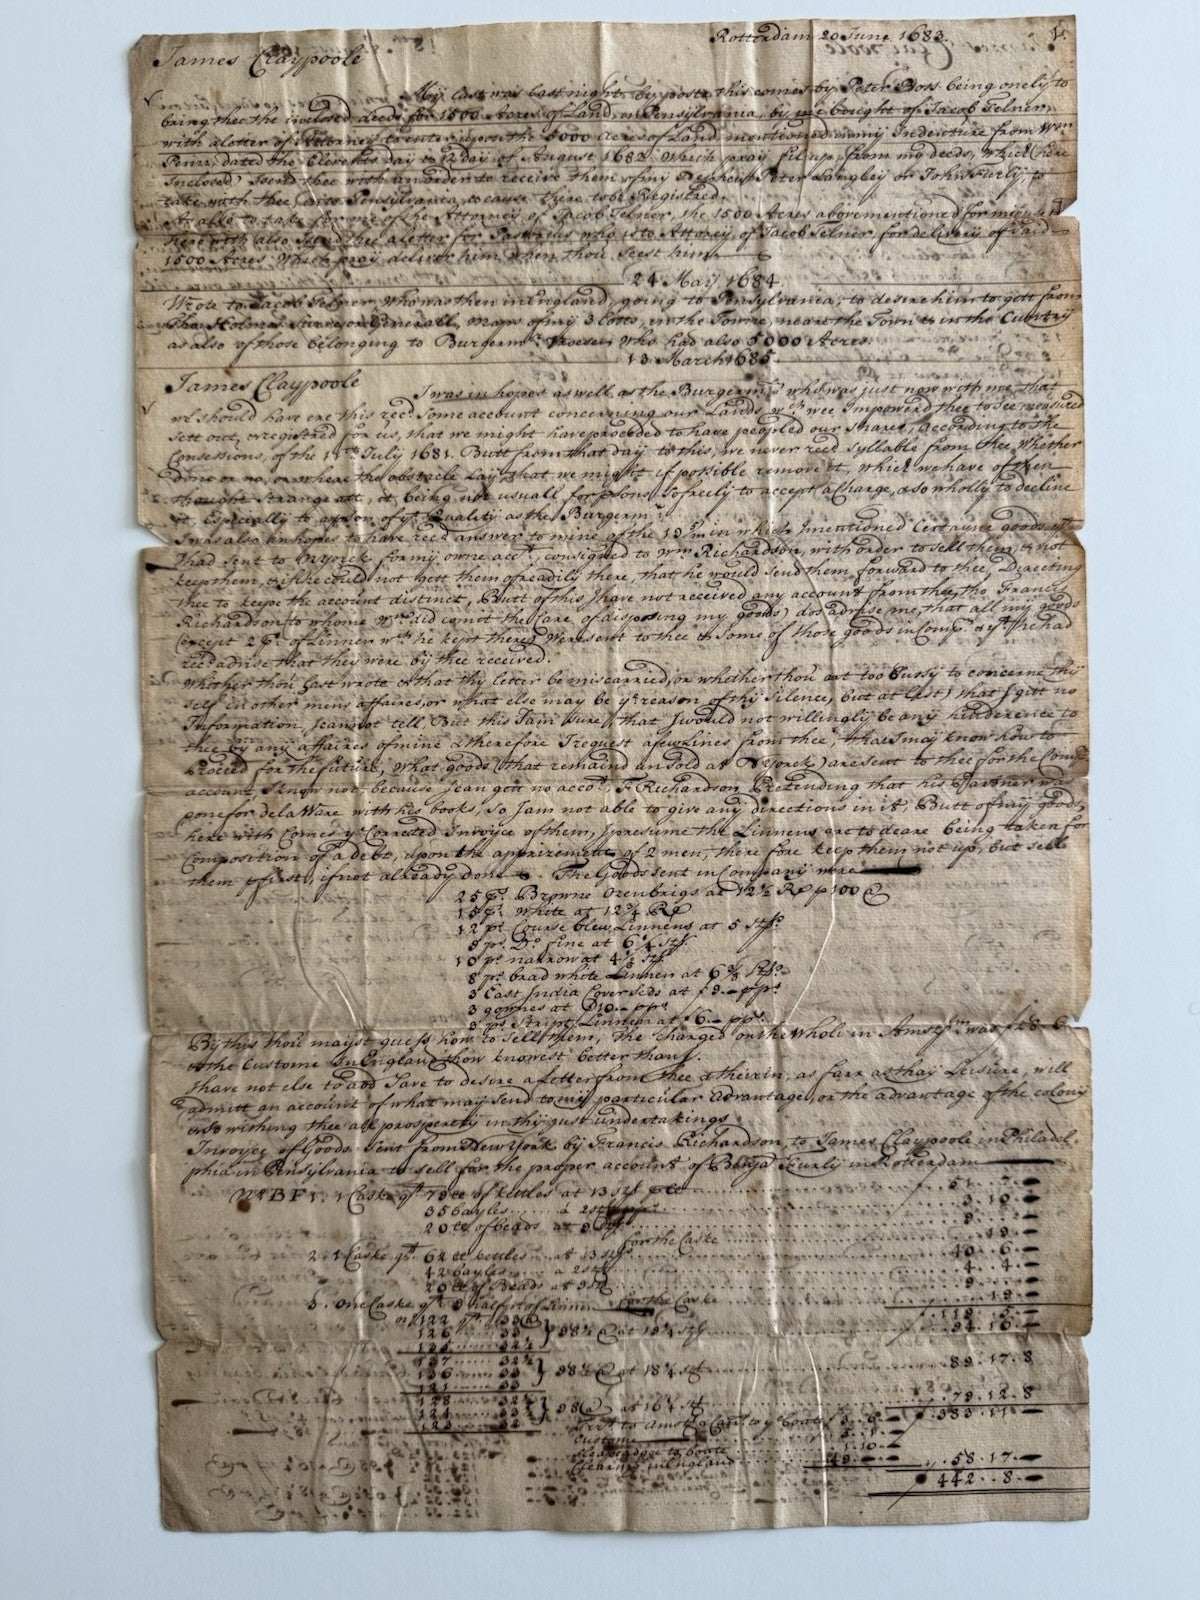 Rotterdam 20 June 1683
James Claypoole
My Last was last night by poste, this comes by Peter Boss being onely to
bring thee the inclosed deeds for 1500 Acres of Land in Pensylvania, by me bought of Jacob Telner,
with a letter of Attorney to enter upon the 5000 acres of Land mentioned in my Indenture from Wm
Penn, dated the Eleventh day & 12 day of August 1682 Which pray fil up, from my deeds, which (here
Inclosed) I send thee with an order to receive them of my Peter Langley or John Furly, to
take with thee unto Pensylvania, to cause there to be Registred.
As also to take for me of the Attorney of Jacob Telner, the 1500 Acres abovementioned for my use
here with also I send thee a letter for Pastorius who is to Attorney of Jacob Telner for delivery of said
1500 Acres Which pray deliver him when thou seest him
24 May 1684
Wrote to Jacob Telner who was then in England, going to Pensylvania, to desire him to gett from
Tho: Holmes Surveyor Generall, Maps of my 3 Lotts, in the Towne, neare the Town & in the Cuntry
as also of those belonging to Burgermr Vroesen who had also 5000 Acres.
13 March 1685
James Claypoole
I was in hopes as well as the Burgermr who was just now with me, that
we should have ere this recd. Some account concerning our Lands wch wee Impowerd thee to See measured
Sett out, & registred for us, that we might have proceeded to have peopled our shares, according to the
Consessions, of the 11th July 1681. Butt from that day to this, we never recd syllable from thee, Whether
done or no, or where the obstacle Lay, that we might if possible remove it, which we have often
thought strange att, it being not usuall for psons so freely to accept a Charge, & so wholly to decline
it, Especially to a pson of yt Quality as the Burgermr
I was also in hopes to have recd answer to mine of the 13 in which I mentioned Certayne goods
I had sent to NYork for my owne acct, consigned to Wm Richardson, with order to sell them, & not
keep them, & if he could not gett them of readily there, that he would send them forward to thee, Directing
thee to keepe the account distinct, Butt of this I have not received any account from thee, tho Francis
Richardson (to whome Wm did comit the Care of disposing my goods) dos advise me, that all my goods
(except 2 ps. of Linnen wch he kept there) were sent to thee & some of those goods in Compa & yt he had
recd advise that they were by thee received.
Whether thou hast wrote & that thy letter be miscarried, or whether thou art too bussy to concerne thy
self in other mens affaires, or what else may be ye reason of thy Silence, but at Last) that I gett no
Information, I cannot tell But this I am Sure, that I would not willingly be any hinderence to
thee by any affaires of mine & therefore I request a few Lines from thee, that I may know how to
Proceed for the future, What goods (that remaind unsold at N York) are sent to thee for the Compa
account, I know not, because I can gett no acct. F Richardson Pretending that his Partner was
gone for dela Ware with his books, so I am not able to give any directions in it, Butt of my goods,
here with Comes ye Corrected Invoyce of them, I presume the Linnens are to deare being taken for
Composition of a debt, upon the apprizement of 2 men, there fore keep them not up, but sell
them first, if not already done. The Goods sent in Company were
25 ps. Browne Ozenbrigs at 12½ Rd p 100 @
15 ps. White at 12¾ Rd
12 ps. Course blew Linnens at 5 stf.
8 ps. Do fine at 6¼ stf
10 ps narrow at 4½ stf
8 ps. brad white Linnen at 6⅜ stf.
3 East India Coverleds at f 9.— p ps
3 gownes at f 10.— p ps
3 ps. Stript Linnen at f 6.— p ps.
By this thou mayst guess how to sell them, the charged on the Whole in Amstdam was
& the Custome In England thou knowest better than I.
I have not else to add Save to desire a letter from thee & therein, as farr as thay Leisure, will
admitt an account of what may tend to my particular advantage, or the advantage of the colony
& so wishing thee all prosperity in thy just undertakings
Invoyce of Goods Sent from New York by Francis Richardson, to James Claypoole in Philadel-
phia in Pensylvania to sell for the proper account of Benja Furly in Rotterdam
No BF 1. 1 Caske qt 79 lb of kettles at 13 stf p lb 51. 7.
35 bayles a 2 stf 3. 10.
20 lb of beads at 9 stf 9.
for the Caske 19.
2. 1 Caske qt. 62 lb kettles at 13 stf 40. 6.
42 bayles a 2 stf 4. 4.
20 lb of Beads at 9 stf 9.
for the Caske 19.
3. One Caske qt 9 halfs of Linnen
119. 5.
no 122 qt. 33 @
126 33 } 98½ @ at 19¼ stf 94. 16.
135 32½
137 32½
136 33 } 98½ @ at 18¼ stf 89. 17. 8
121 33
128 32½
124 33 } 98 @ at 16¼ stf 79. 12. 8
123 32½
f. 383. 11.
Custome
to boate 1. 10.
Clearing in England 49. 58. 17.
f 442. 8.